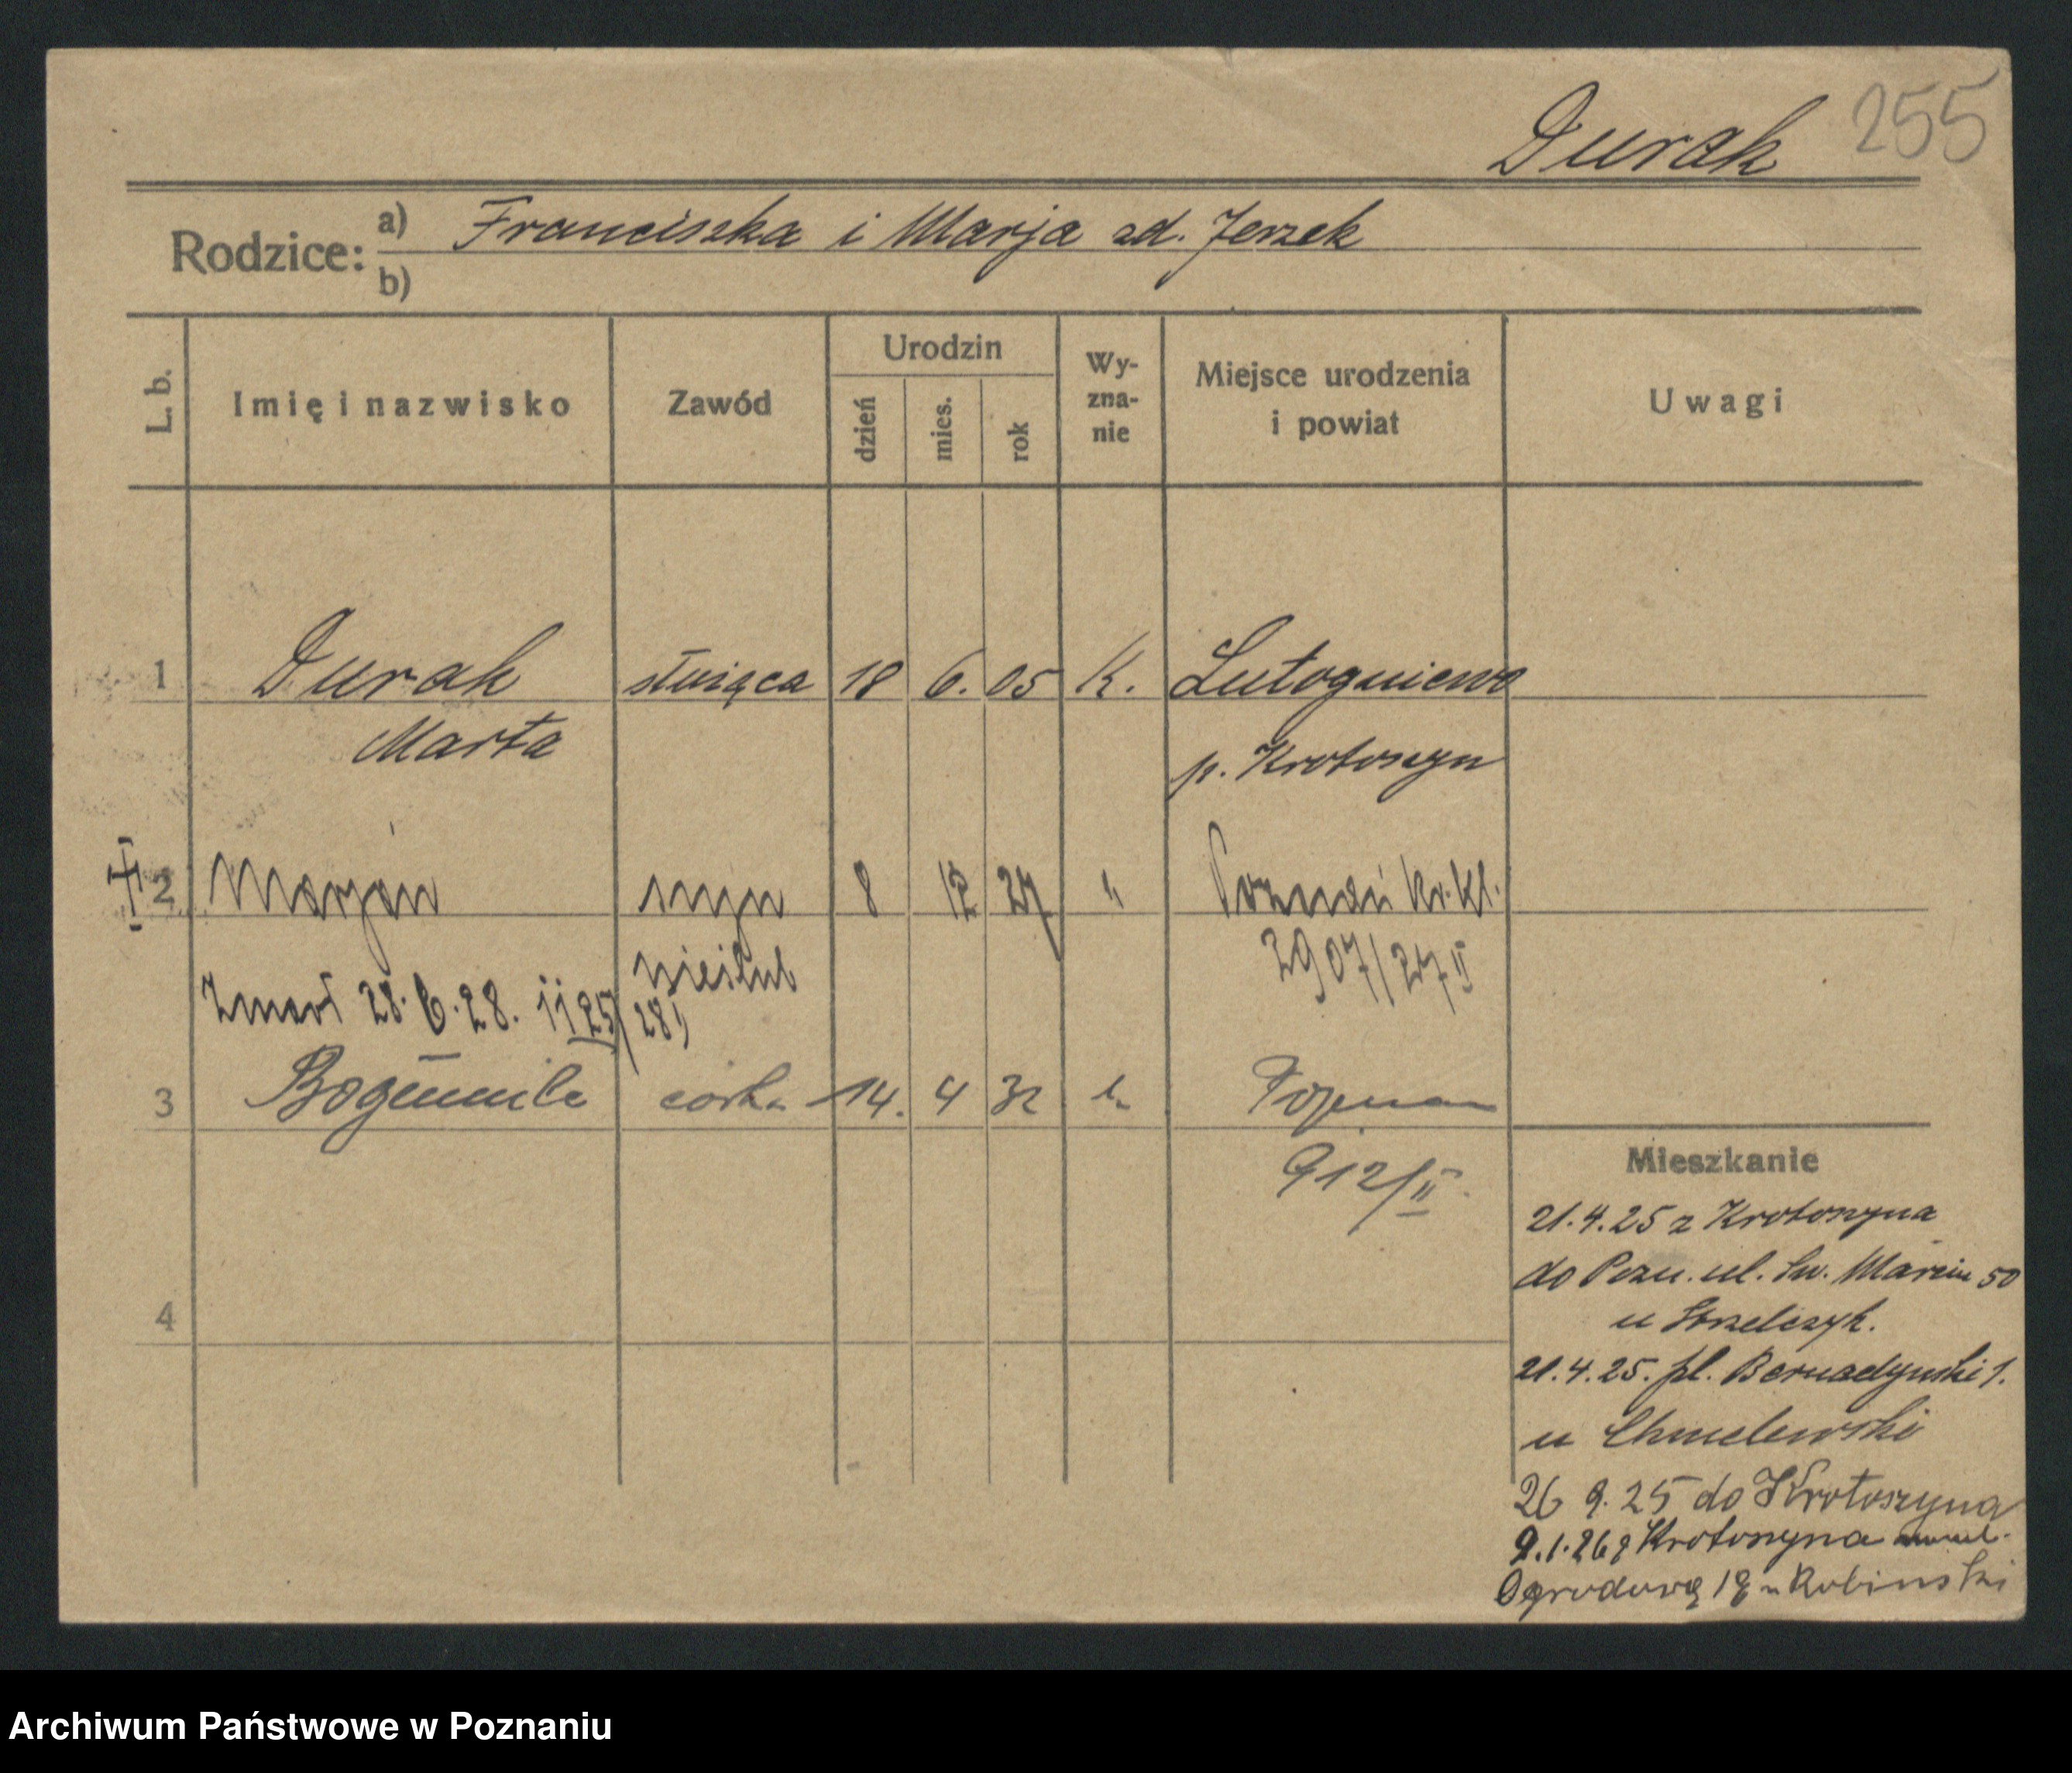 255
Durak
Rodzice: a) Franciszka i Marja zd. Jerzek
b)
L. b. Imię i nazwisko Zawód Urodzin dzień mies. rok Wy-zna-nie Miejsce urodzenia i powiat Uwagi
1 Durak służąca 18 6. 05 K. Lutogniewo
Marta p. Krotoszyn
2 Marjan syn 8 12 27 " Poznań Kr. Kl.
nieślub 2907/27 II
Zmarł 28.6.28. II 25/28
3 Bogumiła córka 14. 4 32 k. Poznań
912/II.
Mieszkanie
21.4.25 z Krotoszyna
do Pozn. ul. Św. Marcin 50
u Strzelczyk.
4
21.4.25. pl. Bernadyński 1.
u Chmelewski
26 9. 25 do Krotoszyna
9.1.26 z Krotoszyna
Ogrodową 18 u Rubinski
Archiwum Państwowe w Poznaniu